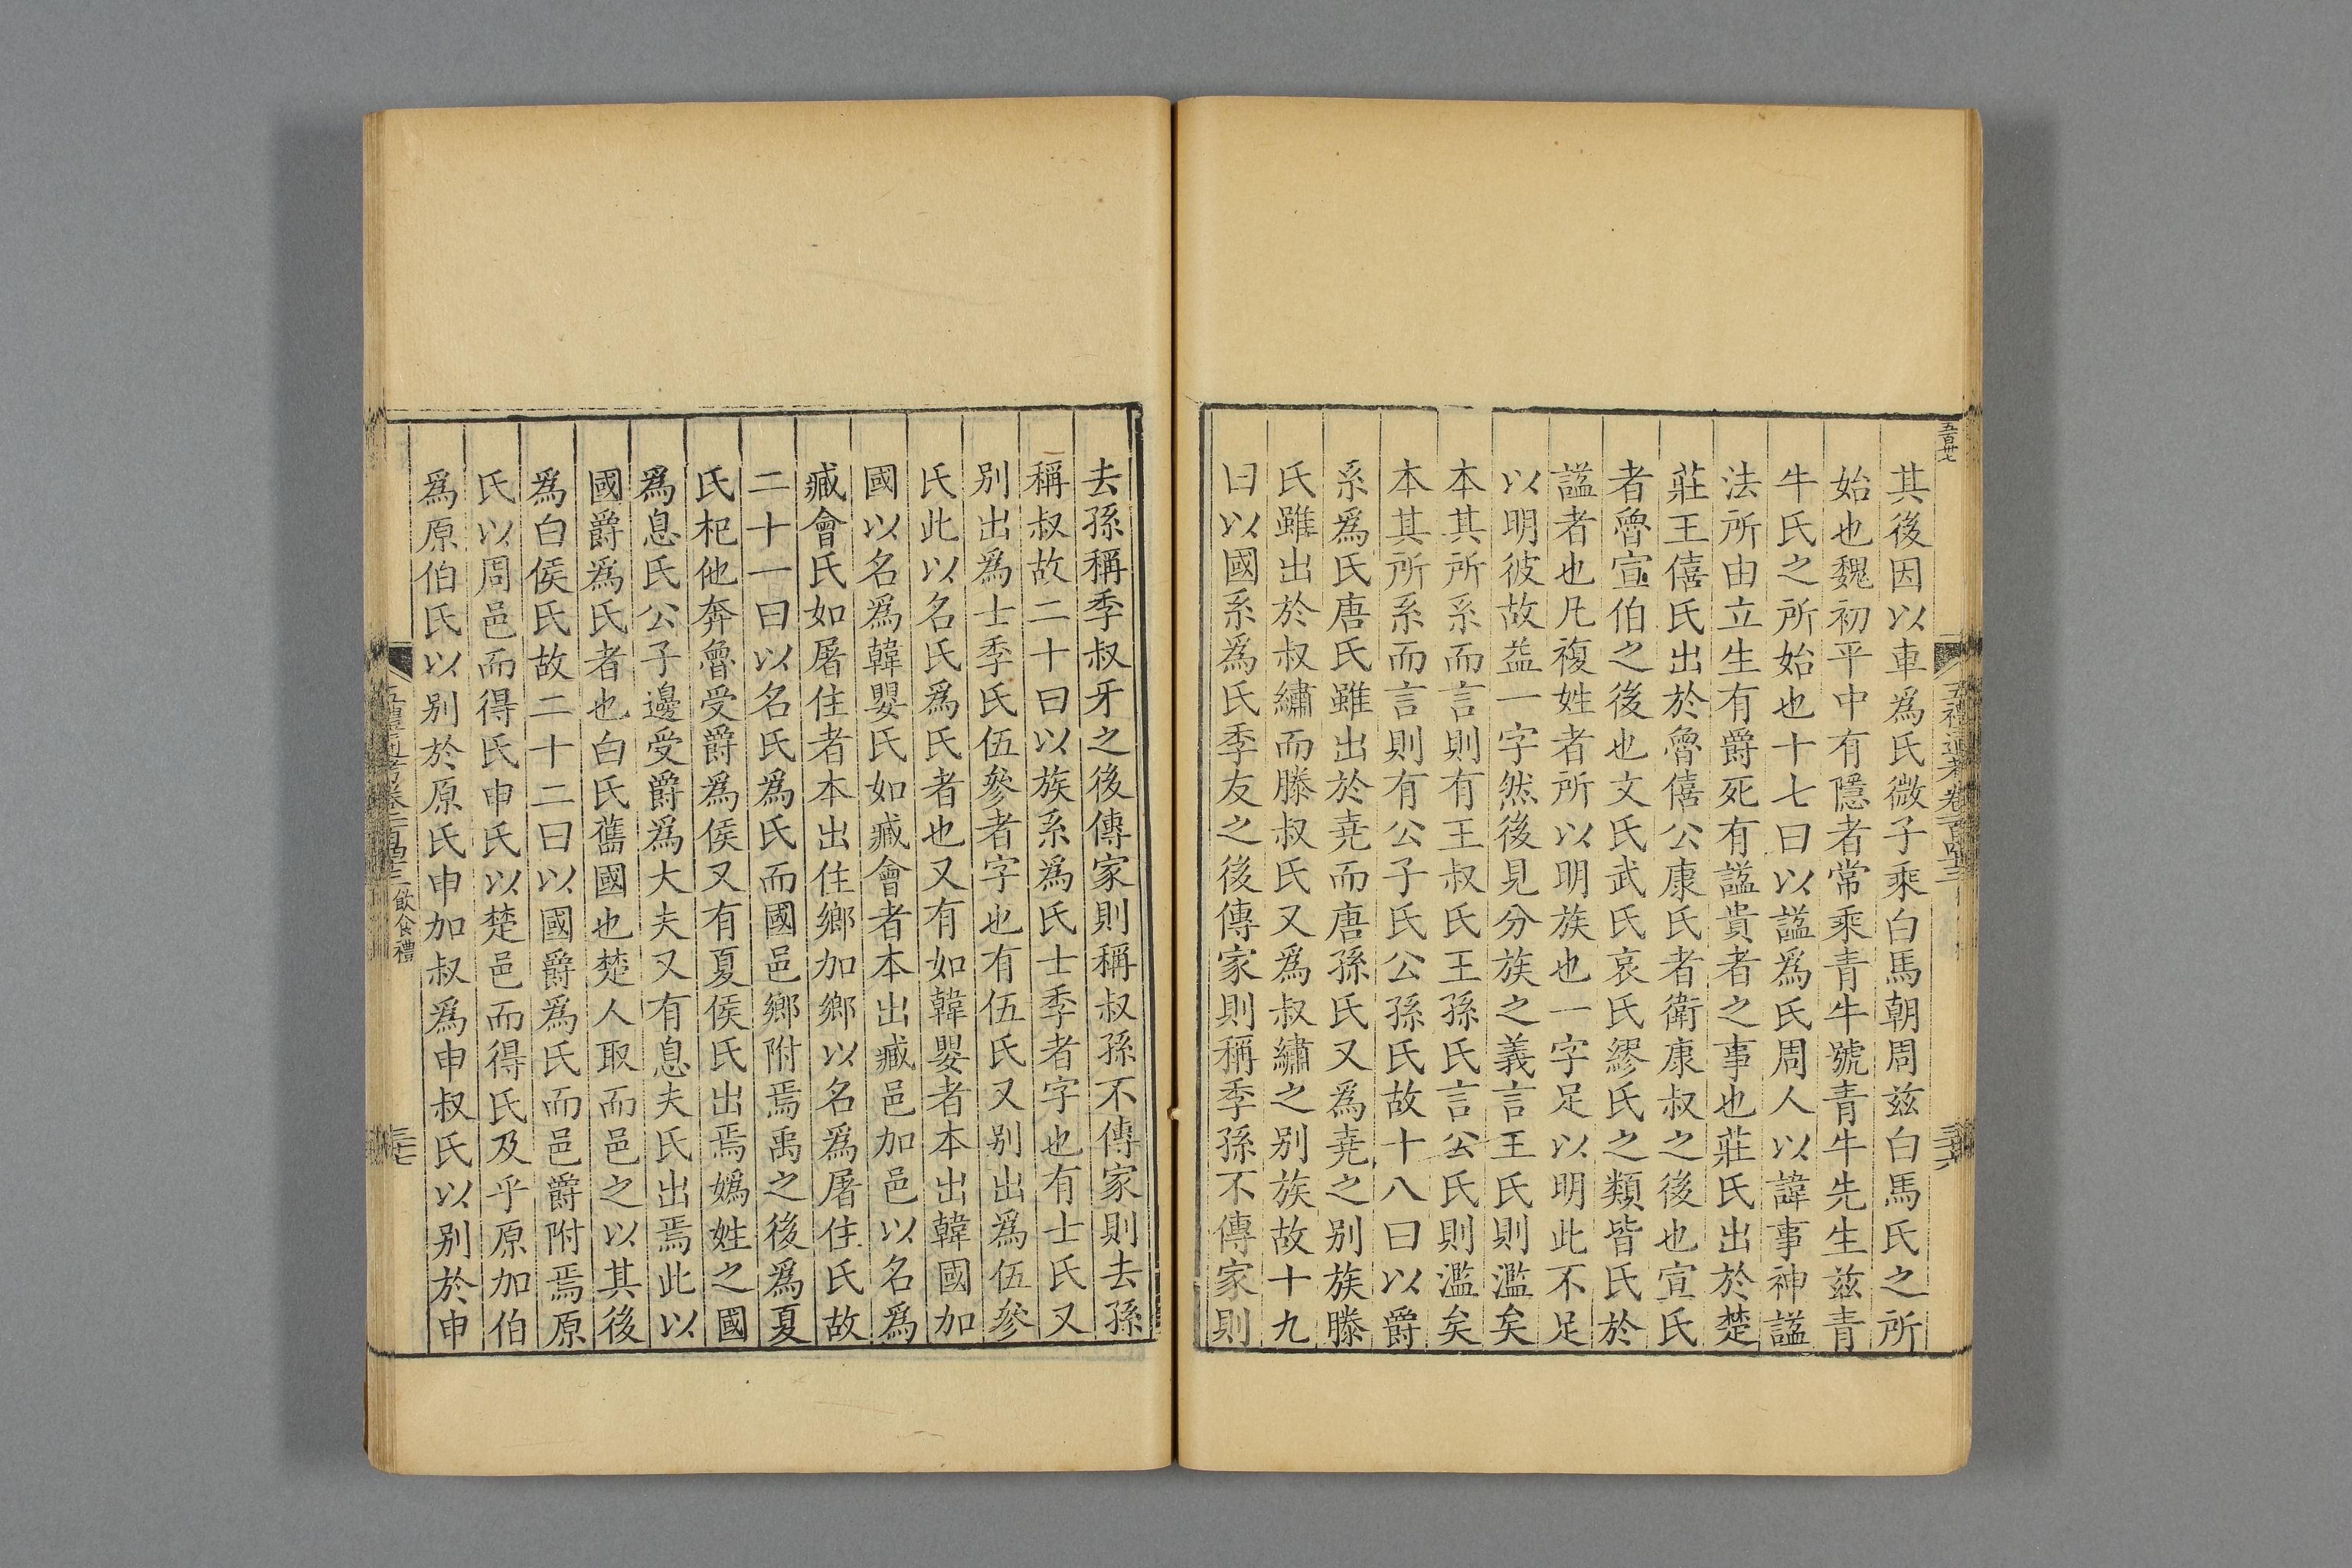 五百卅七
其後因以車爲氏微子乘白馬朝周兹白馬氏之所
始也魏初平中有隱者常乘青牛號青牛先生兹青
牛氏之所始也十七曰以諡爲氏周人以諱事神諡
法所由立生有爵死有諡貴者之事也莊氏出於楚
莊王僖氏出於魯僖公康氏者衛康叔之後也宣氏
者魯宣伯之後也文氏武氏哀氏繆氏之類皆氏於
諡者也凡複姓者所以明族也一字足以明此不足
以明彼故益一字然後見分族之義言王氏則濫矣
本其所系而言則有王叔氏王孫氏言公氏則濫矣
本其所系而言則有公子氏公孫氏故十八曰以爵
系爲氏唐氏雖出於堯而唐孫氏又爲堯之别族滕
氏雖出於叔繡而滕叔氏又爲叔繡之别族故十九
曰以國系爲氏季友之後傳家則稱季孫不傳家則
去孫稱季叔牙之後傳家則稱叔孫不傳家則去孫
稱叔故二十曰以族系爲氏士季者字也有士氏又
别出爲士季氏伍參者字也有伍氏又别出爲伍參
氏此以名氏爲氏者也又有如韓嬰者本出韓國加
國以名爲韓嬰氏如臧會者本出臧邑加邑以名爲
臧會氏如屠住者本出住鄉加鄉以名爲屠住氏故
二十一曰以名氏爲氏而國邑鄉附焉禹之後爲夏
氏杞他奔魯受爵爲侯又有夏侯氏出焉嬀姓之國
爲息氏公子邊受爵爲大夫又有息夫氏出焉此以
國爵爲氏者也白氏舊國也楚人取而邑之以其後
爲白侯氏故二十二曰以國爵爲氏而邑爵附焉原
氏以周邑而得氏申氏以楚邑而得氏及乎原加伯
爲原伯氏以别於原氏申加叔爲申叔氏以别於申
飲食禮